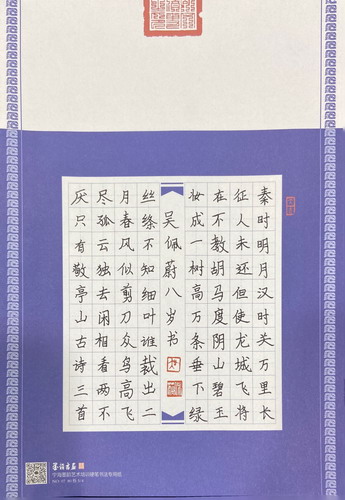 秦时明月汉时关万里长
征人未还但使龙城飞将
在不教胡马度阴山碧玉
妆成一树高万条垂下绿
吴佩蔚八岁书
丝绦不知细叶谁裁出二
月春风似剪刀众鸟高飞
尽孤云独去闲相看两不
厌只有敬亭山古诗三首
艺术培训硬笔书法专用纸